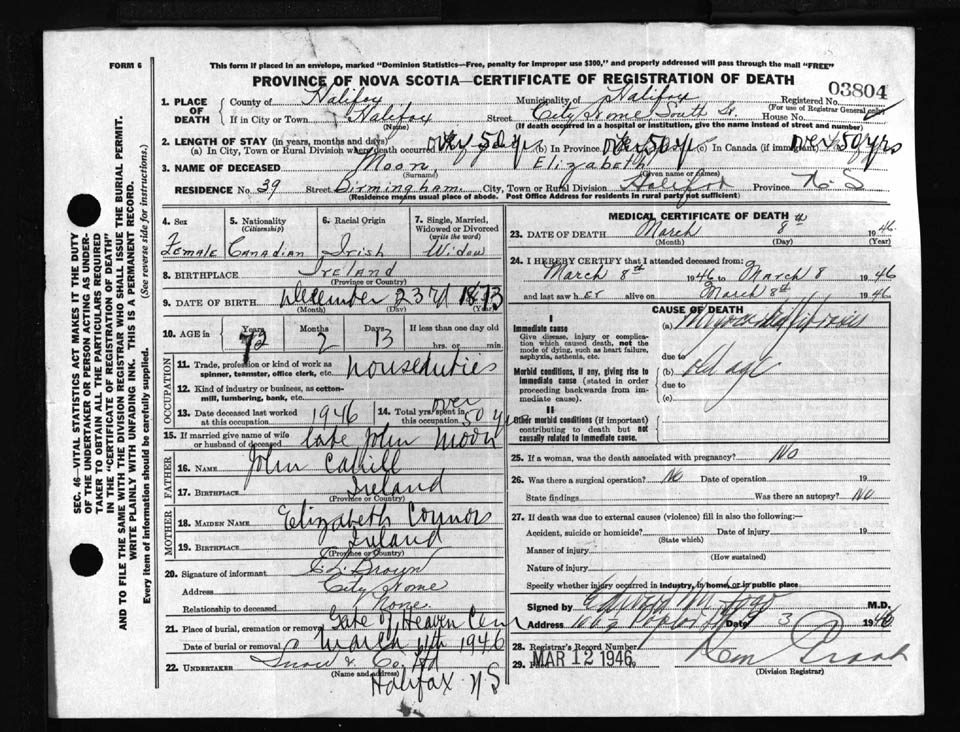 FORM 6
This form if placed in an envelope, marked "Dominion Statistics—Free, penalty for improper use $300," and properly addressed will pass through the mail "FREE"
PROVINCE OF NOVA SCOTIA—CERTIFICATE OF REGISTRATION OF DEATH
03804
1. PLACE OF DEATH
County of Halifax Municipality of Halifax Registered No.
(For use of Registrar General only)
If in City or Town Halifax Street City Home South St. House No.
(Name) (If death occurred in a hospital or institution, give the name instead of street and number)
2. LENGTH OF STAY (in years, months and days)
(a) In City, Town or Rural Division where death occurred over 50 yrs (b) In Province over 50 yrs (c) In Canada (if immigrant) over 50 yrs
3. NAME OF DECEASED Moon Elizabeth
(Surname) (Given name or names)
RESIDENCE No. 39 Street Birmingham City, Town or Rural Division Halifax Province N. S
(Residence means usual place of abode. Post Office Address for residents in rural parts not sufficient)
4. Sex Female
5. Nationality (Citizenship) Canadian
6. Racial Origin Irish
7. Single, Married, Widowed or Divorced (write the word) Widow
8. BIRTHPLACE Ireland
(Province or Country)
9. DATE OF BIRTH December 23rd 1873
(Month) (Day) (Year)
10. AGE in Years 72 Months 2 Days 13 If less than one day old
hrs. or min.
OCCUPATION
11. Trade, profession or kind of work as spinner, teamster, office clerk, etc. housduties
12. Kind of industry or business, as cotton-mill, lumbering, bank, etc.
13. Date deceased last worked at this occupation 1946
14. Total yrs. spent in this occupation over 50 yrs
15. If married give name of wife or husband of deceased late John Moon
FATHER
16. NAME John Cahill
17. BIRTHPLACE Ireland
(Province or Country)
MOTHER
18. MAIDEN NAME Elizabeth Connors
19. BIRTHPLACE Ireland
(Province or Country)
20. Signature of informant Brown
Address City Home
Relationship to deceased None.
21. Place of burial, cremation or removal Gate of Heaven Cem
Date of burial or removal March 11th 1946
22. UNDERTAKER Snow & Co. Ltd
(Name and address)
Halifax N S
MEDICAL CERTIFICATE OF DEATH
23. DATE OF DEATH March 8th 1946
(Month) (Day) (Year)
24. I HEREBY CERTIFY that I attended deceased from:
March 8th 1946 to March 8 1946
and last saw her alive on March 8th 1946
CAUSE OF DEATH
I
Immediate cause
Give disease, injury or complication which caused death, not the mode of dying, such as heart failure, asphyxia, asthenia, etc.
(a)
due to
Morbid conditions, if any, giving rise to immediate cause (stated in order proceeding backwards from immediate cause).
(b) Old age
due to
(c)
II
Other morbid conditions (if important) contributing to death but not causally related to immediate cause.
25. If a woman, was the death associated with pregnancy? No
26. Was there a surgical operation? No Date of operation 19
State findings Was there an autopsy? No
27. If death was due to external causes (violence) fill in also the following:—
Accident, suicide or homicide? Date of injury 19
(State which)
Manner of injury
(How sustained)
Nature of injury
Specify whether injury occurred in industry, in home, or in public place
Signed by Edward M. Fogo M.D.
Address Date 1946
28. Registrar's Record Number
29. MAR 12 1946
(Division Registrar)
SEC. 46—VITAL STATISTICS ACT MAKES IT THE DUTY
OF THE UNDERTAKER OR PERSON ACTING AS UNDER-
TAKER TO OBTAIN ALL THE PARTICULARS REQUIRED
IN THE "CERTIFICATE OF REGISTRATION OF DEATH"
AND TO FILE THE SAME WITH THE DIVISION REGISTRAR WHO SHALL ISSUE THE BURIAL PERMIT.
WRITE PLAINLY WITH UNFADING INK. THIS IS A PERMANENT RECORD.
Every item of information should be carefully supplied. (See reverse side for instructions.)